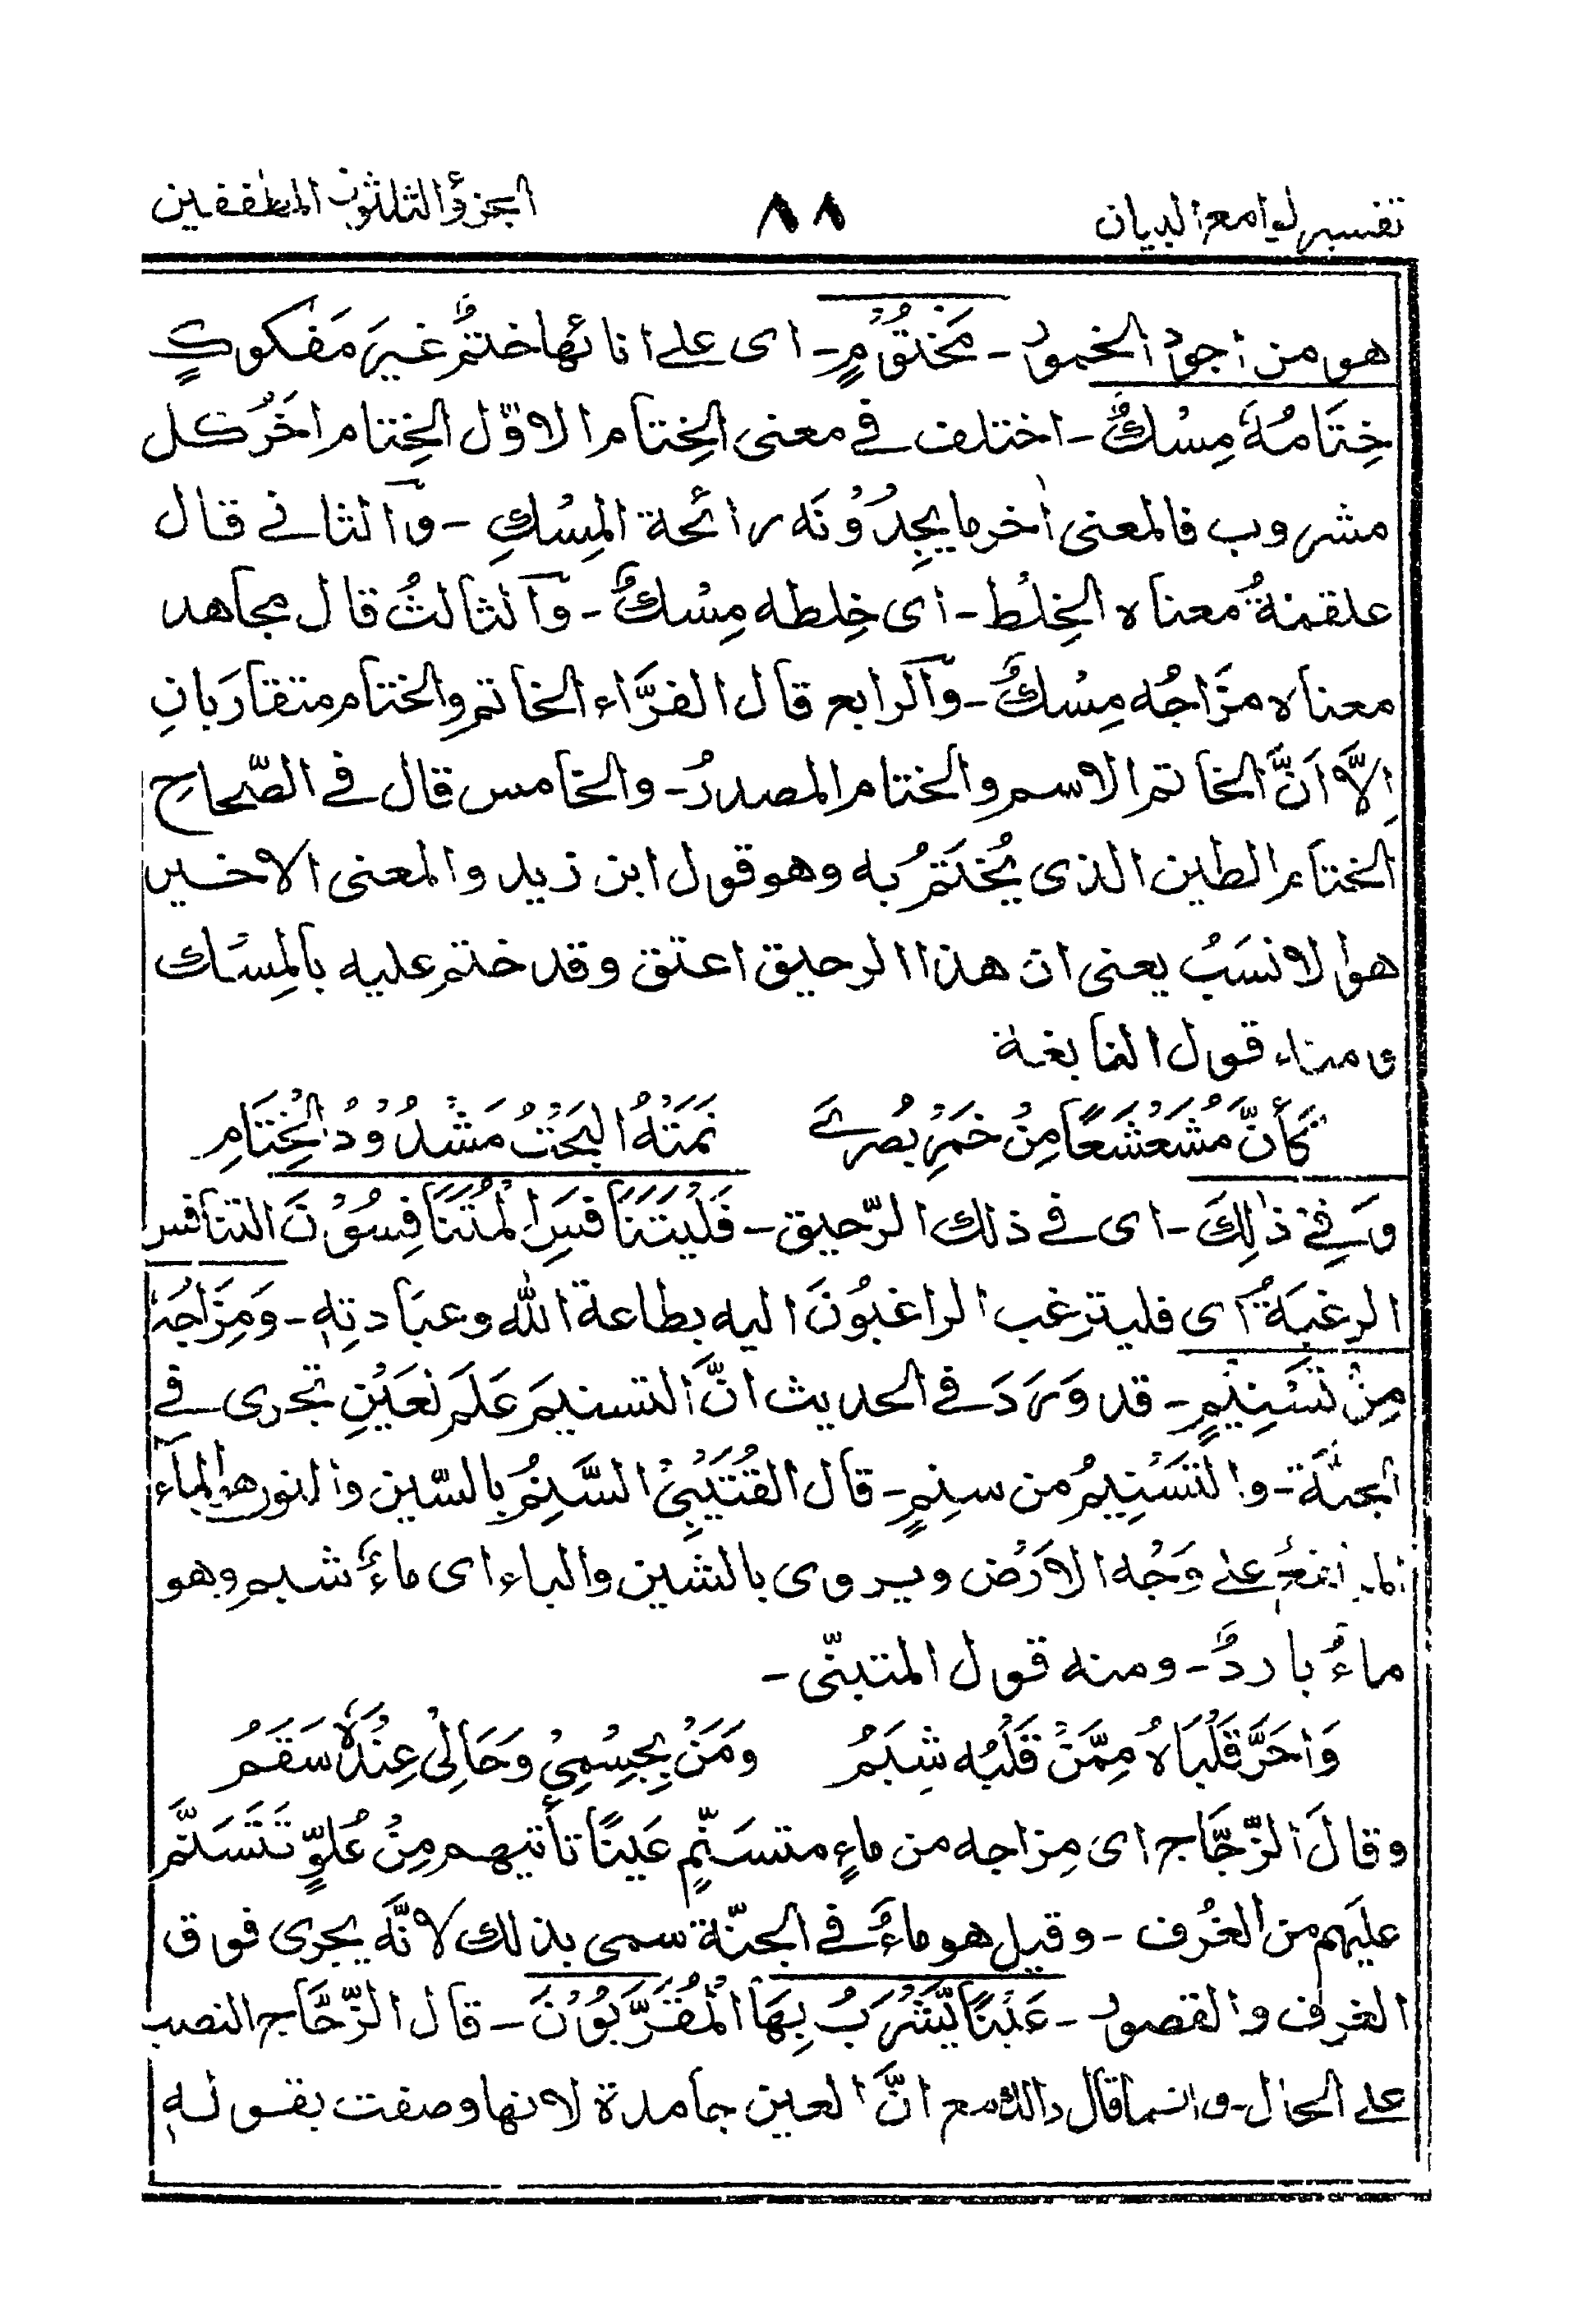 تفسير لوامع البيان ٨٨ الجزؤ الثلثون المطففين
هو من اجود الخمور - مَخْتُوْمٍ - اى على انائها ختمٌ غيرَ مَفكوكٍ
خِتَامُهٗ مِسْكٌ - اختلف فى معنى الخِتام الاوّل الخِتام اٰخَرُ كل
مشروب فالمعنى اٰخر ما يجِدُوْنَه رائحة المِسْكِ - وآلثانى قال
علقمةُ معناه الخِلْط - اى خِلطه مِسْكٌ - وآلثالثُ قال مجاهد
معناه مزَاجُه مِسْكٌ - وآلرابع قال الفرَّاء الخاتم والختام متقارَبانِ
اِلَّا اَنَّ الخاتم الاسم والختام المصدرُ - والخامس قال فى الصّحاح
الختام الطين الذى يُختَمُ به وهو قول ابن زيد والمعنى الاخير
هو الانسَبُ يعنى ان هذا الرحيق اعتق وقد ختم عليه بالمِسْك
ومنه قول النابغة
كَأَنَّ مُشَعْشَعًا مِنْ خَمْرِ بُصْرٰى نَمَتْهُ البُخْتُ مَشْدُوْدُ الخِتَامِ
وَفِىْ ذٰلِكَ - اى فى ذلك الرّحيق - فَلْيَتَنَافَسِ الْمُتَنَافِسُوْنَ التنافس
الرغبَةُ آى فليترغب الراغبُوْنَ اليه بطاعة الله وعبادتِهٖ - وَمِزَاجُهٗ
مِنْ تَسْنِيْمٍ - قد وَرَدَ فى الحديث انَّ التسنيمَ عَلَم لعَيْنٍ تجرى فى
الجنَّة - والتَسْنِيمُ من سنِمٍ - قال القُتَيْبِىُّ السَّنِمُ بالسّين والنون هو المآء
المرتفعُ على وَجْه الارَْض ويروى بالشين والباء اى ماءٌ شبم وهو
ماءٌ باردٌ - ومنه قول المتبنّى -
وَاحَرَّ قَلْبَاهُ مِمَّنْ قَلْبُه شِبَمُ ومَنْ بِجِسْمِىْ وَحَالِىْ عِنْدَهٗ سَقَمُ
وقالَ الزّجَّاج اى مِزاجه من ماءٍ متسَنّمٍ عَيْنًا تأتيهم مِنْ عُلوٍّ تَتَسَنَّم
عليهم من الغُرف - وقيل هو ماءٌ فى الجنّة سمى بذلك لانَّه يجرى فوق
الغرف والقصور - عَيْنًا يَّشْرَبُ بِهَا الْمُقَرَّبُوْنَ - قال الزّجَّاج النصب
على الحال - وانما قال ذالك مع انَّ العين جامدة لانها وصفت بقولهٖ